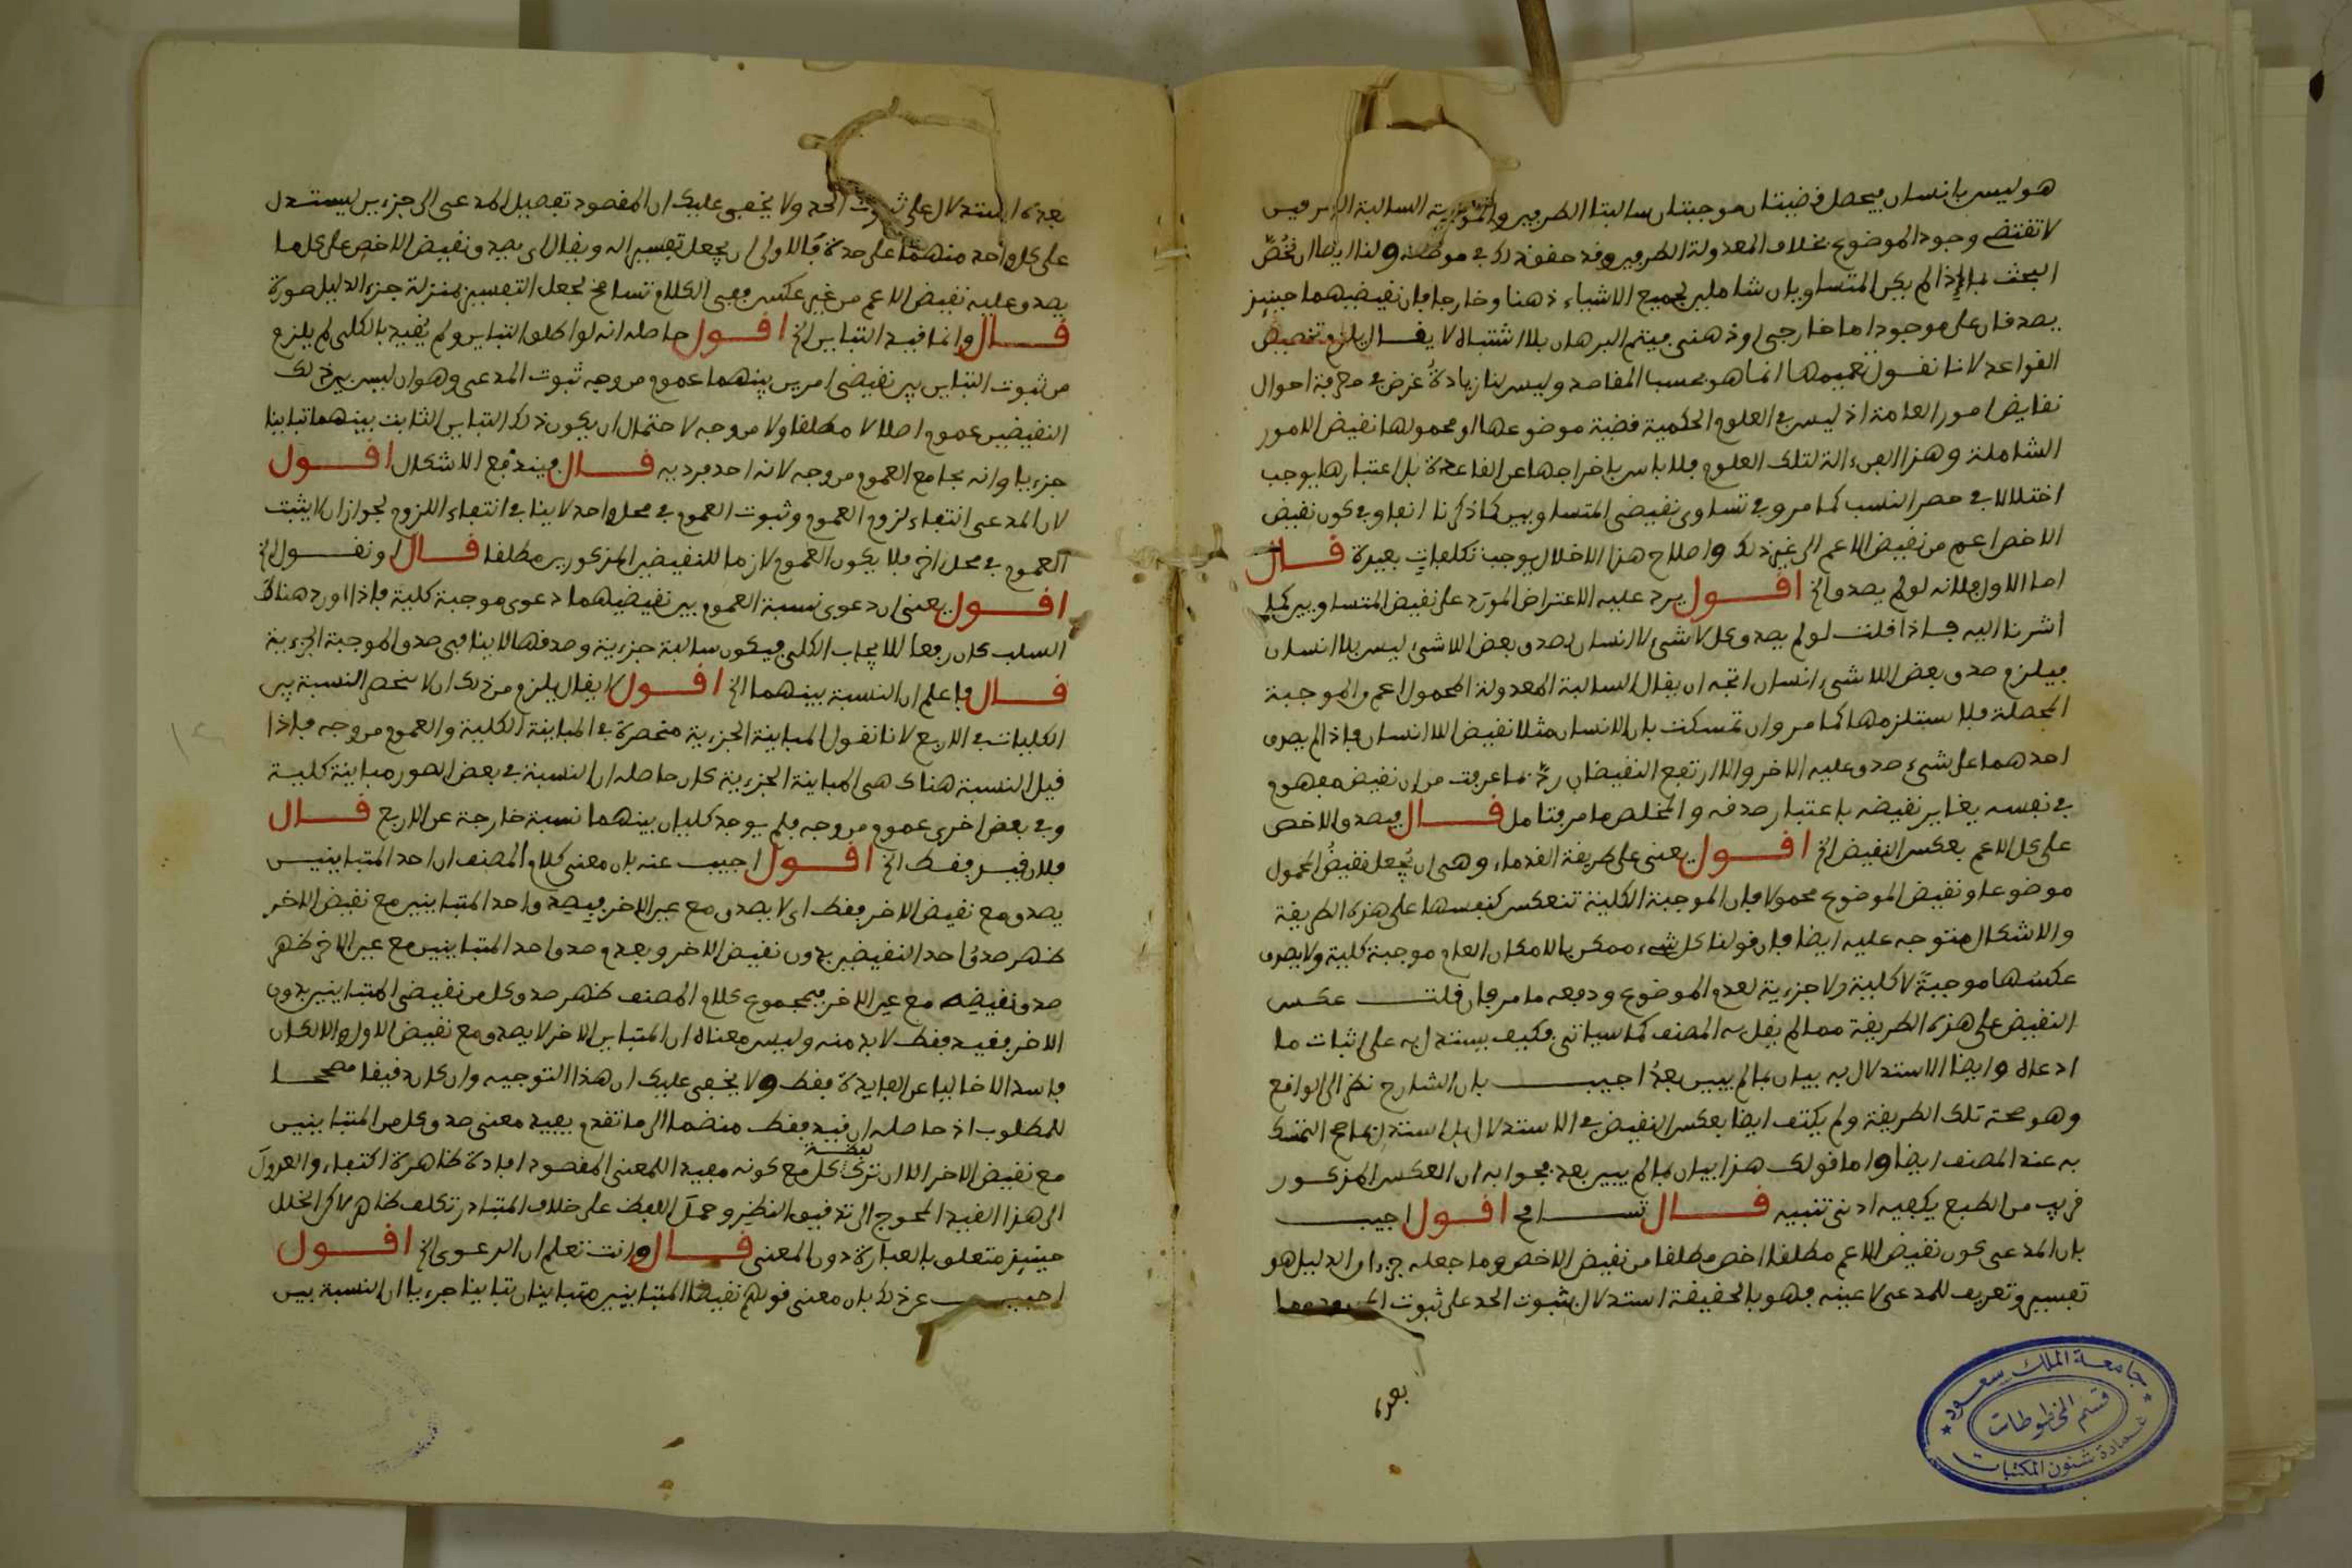 هو ليس بانسان فيحصل قضيتان موجبتان سالبتا الطرفين والموجبة السالبة الطرفين
لا تقتضى وجود الموضوع بخلاف المعدولة الطرفين وقد حقق ذلك فى موضعه ولنا ايضا ان نخصّ
البحث بما اذا لم يكن المتساويان شاملين لجميع الاشياء ذهنا وخارجا فان نقيضيهما حينئذ
يصدقان على موجود اما خارجى او ذهنى فيتم البرهان بلا اشتباه لا يقال يلزم تخصيص
القواعد لانا نقول تعميمها انما هو بحسب المقاصد وليس لنا زيادةُ غرض فى معرفة احوال
نقايض امور العامة اذ ليس فى العلوم الحكمية قضية موضوعها او محمولها نقيض الامور
الشاملة وهذا الفن الة لتلك العلوم فلا باس باخراجها عن القاعدة بل اعتبارها يوجب
اختلالا فى حصر النسب كما مر وفى تساوى نقيضى المتساويين كما ذكرنا انفا وفى كون نقيض
الاخص اعم من نقيض الاعم الى غير ذلك واصلاح هذا الاخلال يوجب تكلفات بعيدة قال
اما الاول فلانه لو لم يصدق الخ اقول يرد عليه الاعتراض المورد على نقيض المتساويين كما
اشرنا اليه فاذا قلت لو لم يصدق كل لا شىء لا انسان لصدق بعض اللاشىء ليس بلا انسان
فيلزم صدق بعض اللاشىء انسان اتجه ان يقال السالبة المعدولة المحمول اعم من الموجبة
المحصلة فلا ستلزمها كما مر وان تمسكت بان الانسان مثلا نقيض اللاانسان فاذا لم يصدق
احدهما على شىء صدق عليه الاخر والا ارتفع النقيضان ردّ بما عرفت من ان نقيض مفهوم
فى نفسه يغاير نقيضه باعتبار صدقه والمخلص ما مر فتامل قال فيصدق الاخص
على كل الاعم بعكس النقيض الخ اقول يعنى على طريقة القدماء وهى ان يُجعل نقيضُ المحمول
موضوعا ونقيض الموضوع محمولا فان الموجبة الكلية تنعكس كنفسها على هذه الطريقة
والاشكال متوجه عليه ايضا فان قولنا كل شىء ممكن بالامكان العام موجبة كلية ولا يصدق
عكسها موجبةً لا كلية ولا جزءية لعدم الموضوع ودفعه ما مر فان قلت عكس
النقيض على هذه الطريقة مما لم يقل به المصنف كما سياتى فكيف يستدل به على اثبات ما
ادعاه وايضا الاستدلال به بيان بما لم يبين بعدُ اجيب بان الشارح نظر الى الواقع
وهو صحة تلك الطريقة ولم يكتف ايضا بعكس النقيض فى الاستدلال بل استدل بما صح التمسك
به عند المصنف ايضا واما قولك هذا بيان بما لم يبين بعد فجوابه ان العكس المذكور
قريب من الطبع يكفيه ادنى تنبيه قال تسامح اقول اجيب
بان المدعى كون نقيض الاعم مطلقا اخص مطلقا من نقيض الاخص وما جعله جزءا من الدليل هو
تفسير وتعريف للمدعى لا عينه فهو بالحقيقة استدلال بثبوت الحد على ثبوت المحدود
بعده
بعده استدلال على ثبوت الحد ولا يخفى عليك ان المقصود تفصيل المدعى الى جزءين ليستدل
على كل واحد منهما على حدة فالاولى ان يجعل تفسيرا له ويقال اى يصدق نقيض الاخص على كل ما
يصدق عليه نقيض الاعم من غير عكس ففى الكلام تسامح لجعل التفسير بمنزلة جزء الدليل صورة
قال وانما قيد التباين الخ اقول حاصله انه لو اطلق التباين ولم يُقيد بالكلى لم يلزم
من ثبوت التباين بين نقيضى امرين بينهما عموم من وجه ثبوت المدعى وهو ان ليس بين ذلك
النقيضين عموم اصلا لا مطلقا ولا من وجه لاحتمال ان يكون ذلك التباين الثابت بينهما تباينا
جزءيا وانه يجامع العموم من وجه لانه احد فرديه قال فيندفع الاشكال اقول
لان المدعى انتفاء لزوم العموم وثبوت العموم فى محل واحد لا ينافى انتفاء اللزوم لجواز ان لا يثبت
العموم فى محل اخر فلا يكون العموم لازما للنقيضين المذكورين مطلقا قال او نقول الخ
اقول يعنى ان دعوى نسبة العموم بين نقيضيهما دعوى موجبة كلية فاذا اورد هناك
السلب كان رفعا للايجاب الكلى فيكون سالبة جزءية وصدقها لا ينافى صدق الموجبة الجزءية
قال فاعلم ان النسبة بينهما الخ اقول لا يقال يلزم من ذلك ان لا تنحصر النسبة بين
الكليات فى الاربع لانا نقول المباينة الجزءية منحصرة فى المباينة الكلية والعموم من وجه فاذا
قيل النسبة هناك هى المباينة الجزءية كان حاصله ان النسبة فى بعض الصور مباينة كلية
وفى بعض اخرى عموم من وجه فلم يوجد كليان بينهما نسبة خارجة عن الاربع قال
فلان قيد فقط الخ اقول اجيب عنه بان معنى كلام المصنف ان احد المتباينيين
يصدق مع نقيض الاخر فقط اى لا يصدق مع عين الاخر فيصدق احد المتباينين مع نقيض الاخر
ظهر صدقُ احد النقيضين بدون نقيض الاخر وبعدم صدق احد المتباينين مع عين الاخر ظهر
صدق نقيضه مع عين الاخر فبمجموع كلام المصنف ظهر صدق كل من نقيضى المتباينين بدون
الاخر فقيد فقط لا بد منه وليس معناه ان المتباين الاخر لا يصدق مع نقيض الاول والا لكان
فاسدا لا خاليا عن الفايدة فقط ولا يخفى عليك ان هذا التوجيه وان كان دقيقا مصححا
للمطلوب اذ حاصله ان قيد فقط منضما الى ما تقدم يفيد معنى صدق كل من المتباينين
مع نقيض الاخر الا ان ترك لفظة كل مع كونه مفيدا للمعنى المقصود افادة ظاهرة اكتفاء والعدول
الى هذا القيد المحوج الى تدقيق النظر وحمل اللفظ على خلاف المتبادر تكلف ظاهر لاكن الخلل
حينئذ متعلق بالعبارة دون المعنى قال وانت تعلم ان الدعوى الخ اقول
اجيب عن ذلك بان معنى قولهم نقيضا المتباينين متباينان تباينا جزءيا ان النسبة بين
جامعة الملك سعود
قسم المخطوطات
عمادة شئون المكتبات